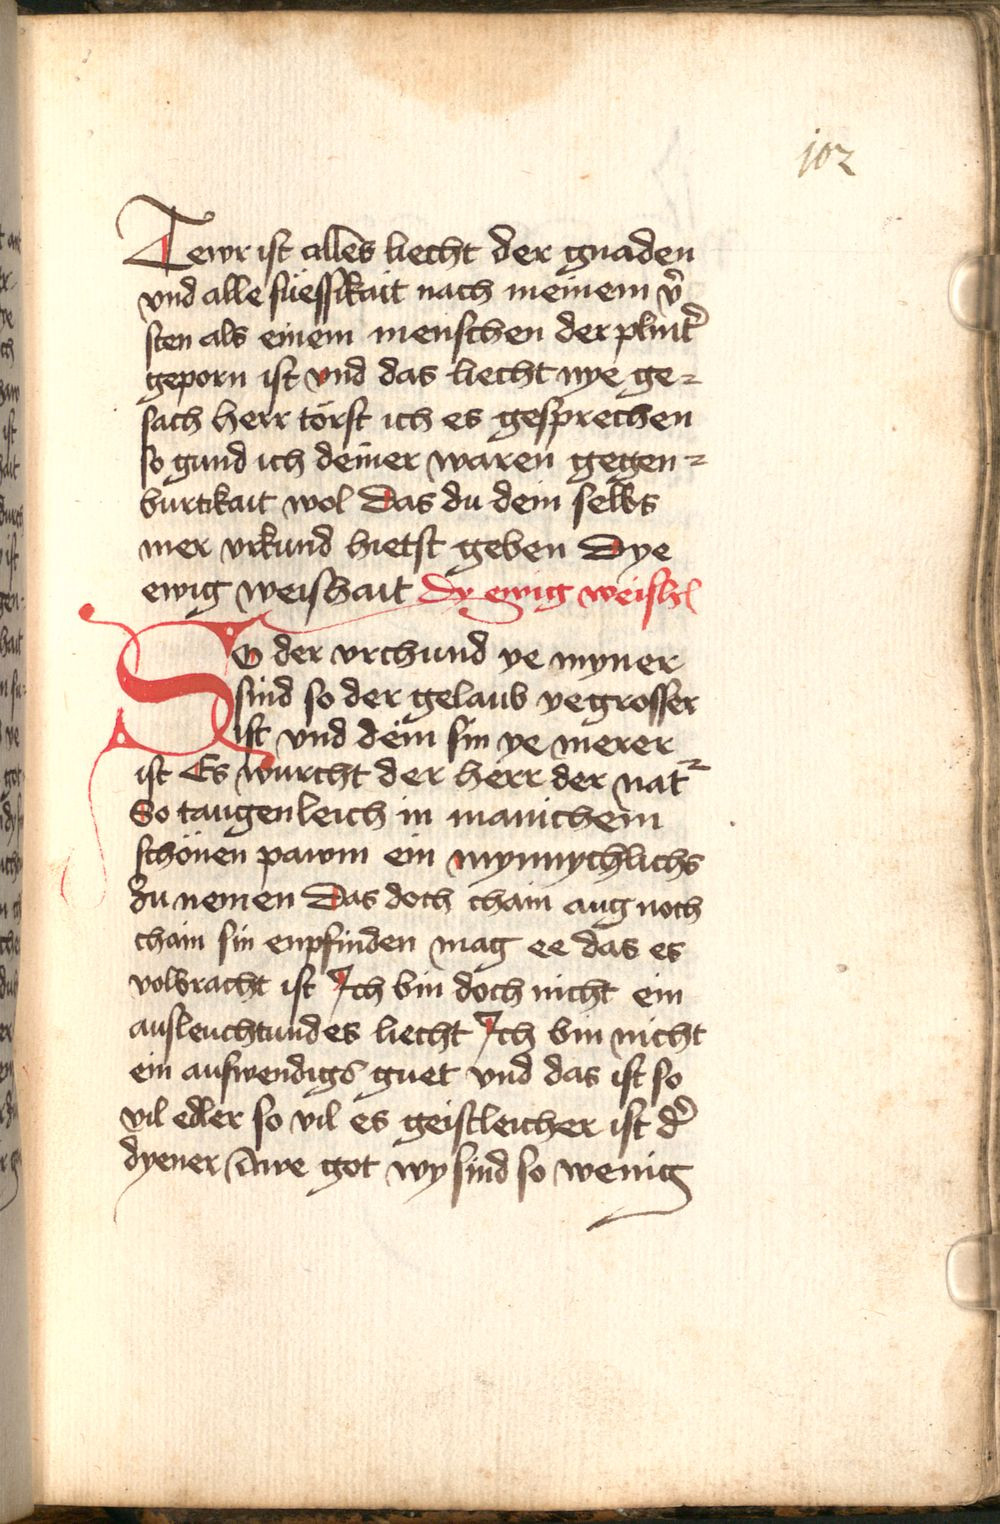 102
Tewr ist alles liecht der gnaden
vnd alle süessikait nach meinem v̉
sten als einem menschen der plintˀ
geporn ist vnd das liecht nye ge⸗
sach herr törst ich es gesprechen
so gund ich deiner waren gegen⸗
burtkait wol Das du dein selbs
mer vrkund hietst geben Dye
ewig weishait Dy ewig weish
So der vrchund ye myner
sind so der gelaub ye grosser
ist vnd dein sin ye merer
ist Es wurcht der herr der nat²
So taugenleich in manichem
schönen pawm ein mynnychlichs
zu nemen Das doch chain aug noch
chain sin enpfinden mag ee das es
volbracht ist Ich bin doch nicht ein
ausleuchtundes liecht Ich bin nicht
ein auswendigs guet vnd das ist so
vil edler so vil es geistleicher ist dˀ
dyener Awe got wy sind so wenig